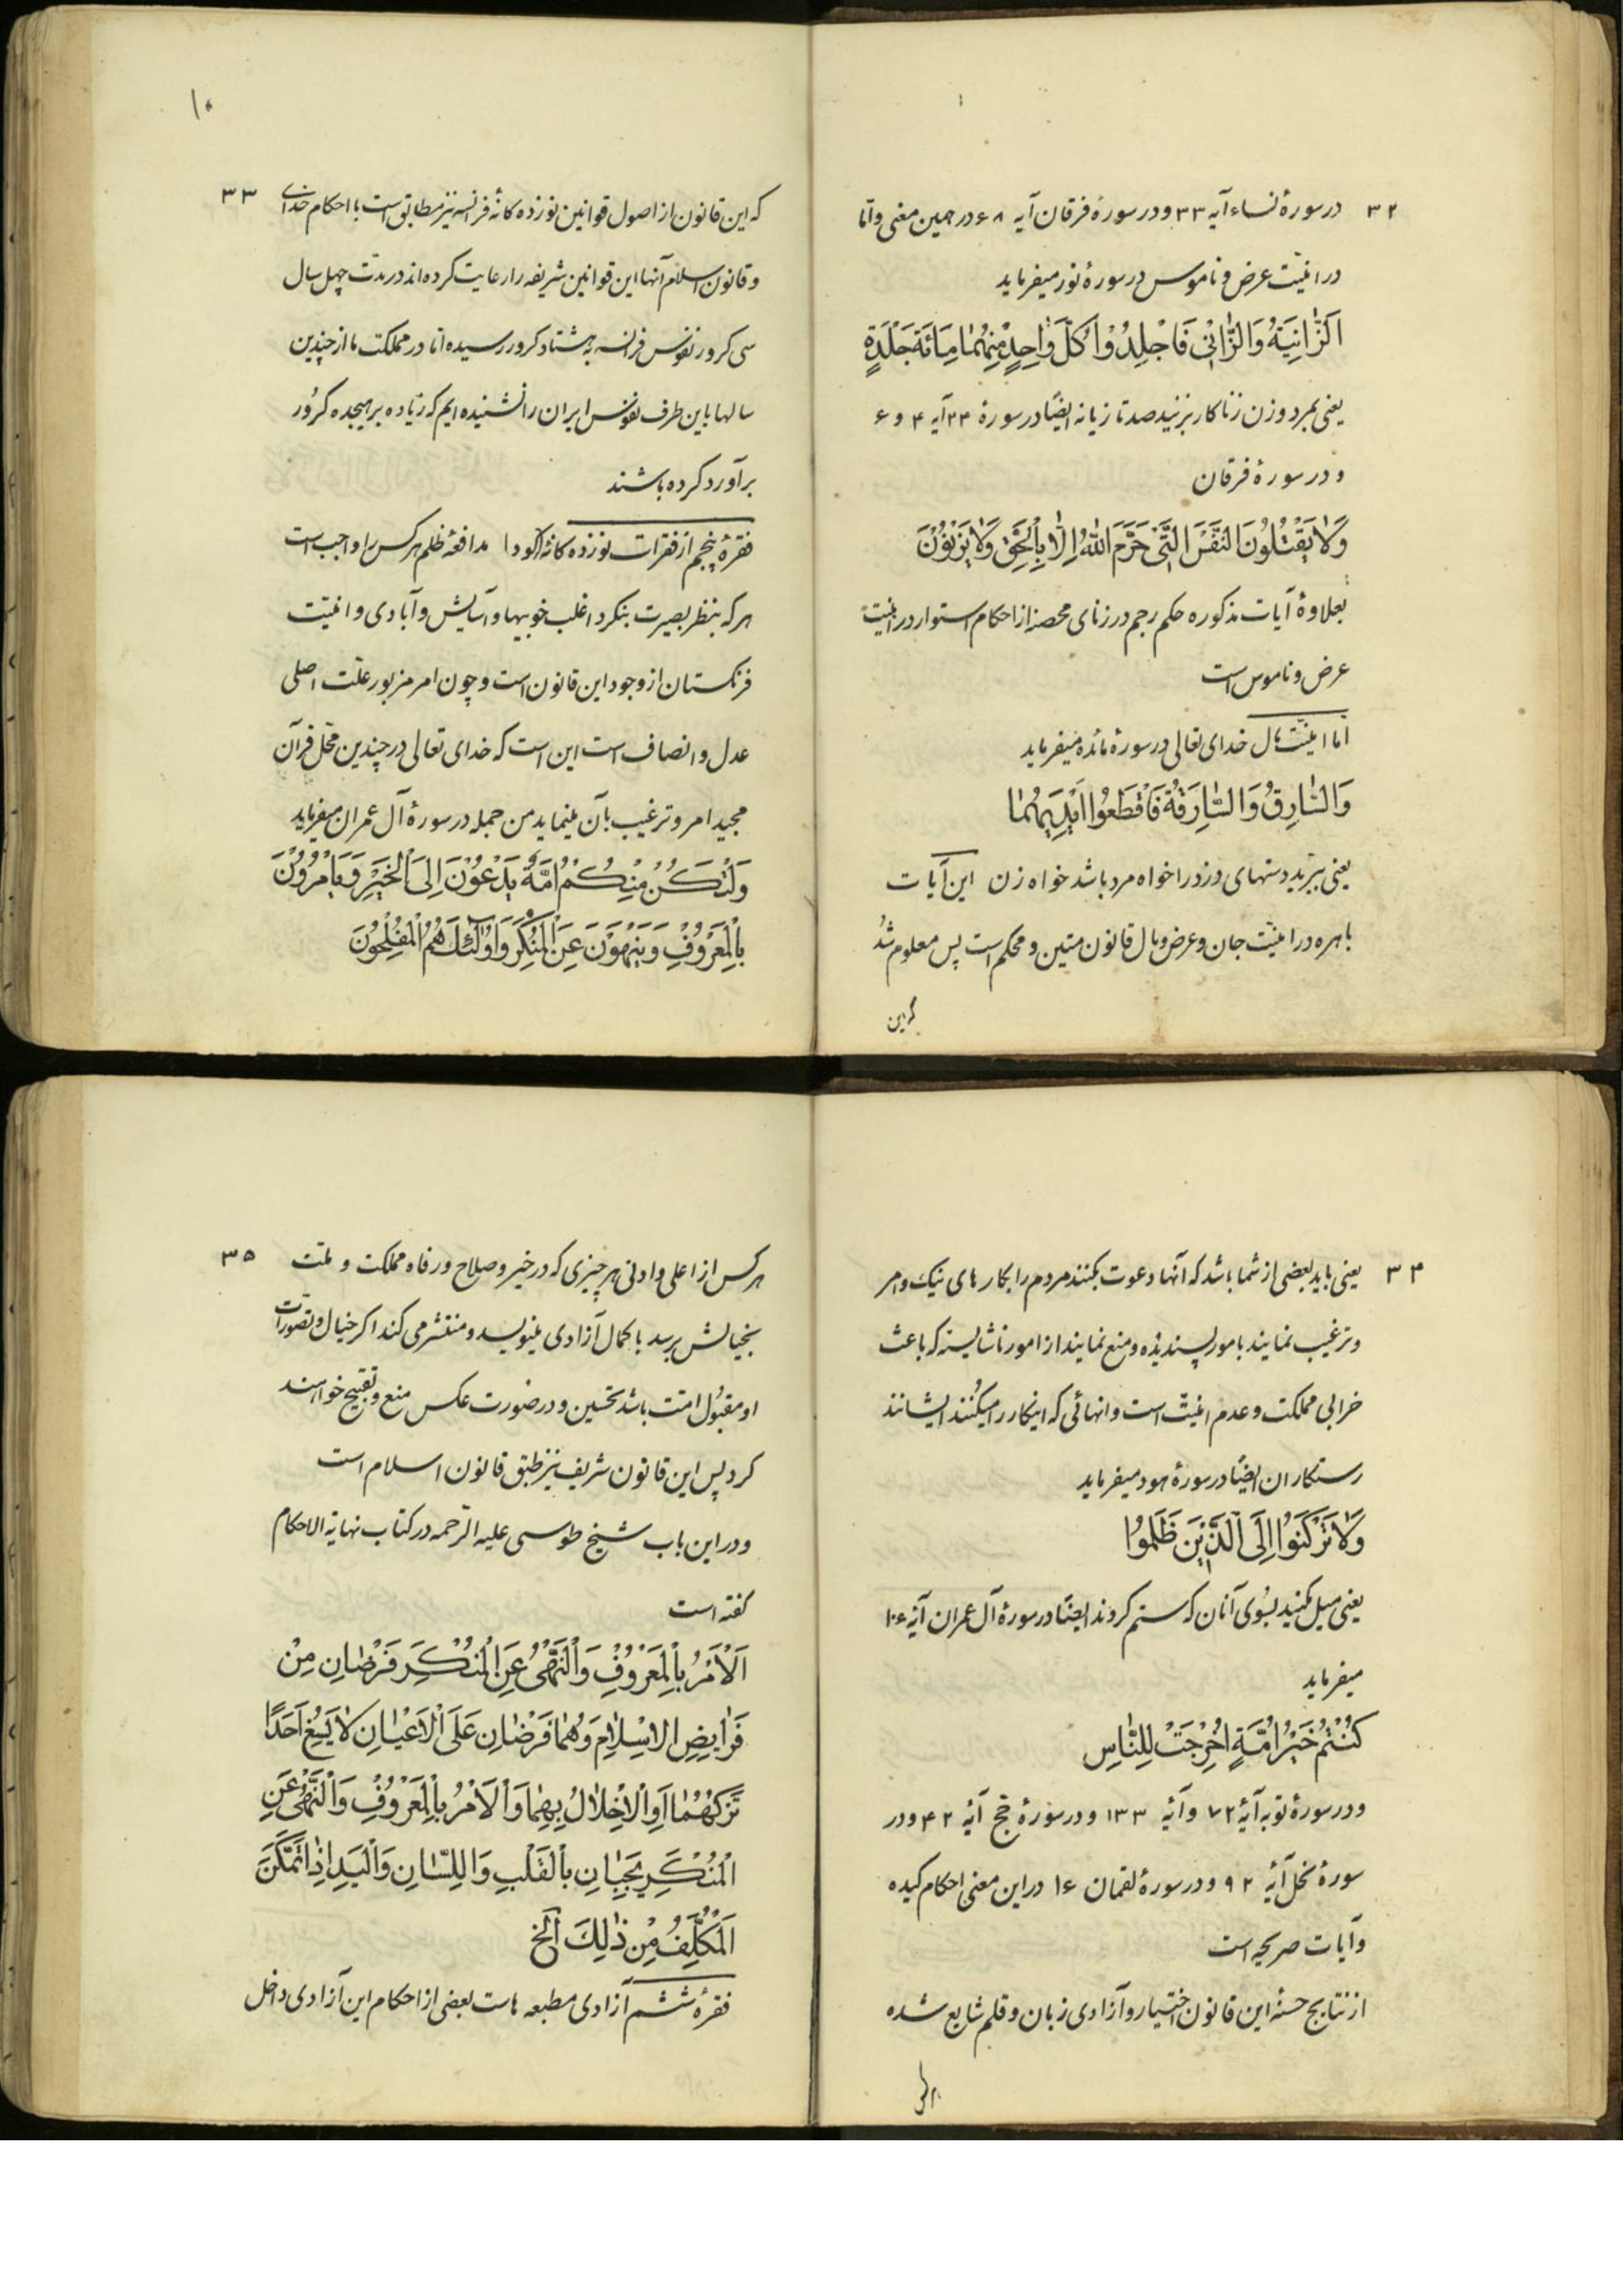 ۳۲
در سورهٔ نساء آیه ۳۳ و در سورهٔ فرقان آیه ۶۸ در همین معنی و اما
در امنیّت عرض و ناموس در سورهٔ نور میفرماید
اَلزّانِیَةُ وَالزّانی فَاجْلِدُوْا کُلَّ وٰاحِدٍ مِنْهُمٰا مِائَةَ جَلْدَةٍ
یعنی بمرد و زن زناکار بزنید صد تازیانه ایضًا در سورهٔ ۲۴ آیه ۴ و ۶
و در سورهٔ فرقان
وَلاٰ یَقْتُلُونَ النَّفْسَ الَّتی حَرَّمَ اللّٰهُ اِلّٰا بِالْحَقِّ وَلاٰ یَزْنُوْنَ
بعلاوهٔ آیات مذکوره حکم رجم در زنای محصنه از احکام استوار در امنیت
عرض و ناموس است
اما امنیّت مال خدای تعالی در سورهٔ مائده میفرماید
وَالسّٰارِقُ وَالسّٰارِقَةُ فَاقْطَعُوا اَیْدِیَهُمٰا
یعنی ببرّید دستهای دزد را خواه مرد باشد خواه زن این آیات
باهره در امنیّت جان و عرض و مال قانون متین و محکم است پس معلوم شد
که این
۱۰
۳۳
که این قانون از اصول قوانین نوزده کانهٔ فرانسه نیز مطابق است با احکام خدای
و قانون اسلام آنها این قوانین شریفه را رعایت کرده‌اند در مدّت چهل سال
سی کرور نفوس فرانسه به هشتاد کرور رسیده اما در مملکت ما از چندین
سالها باین طرف نفوس ایران را نشنیده ایم که زیاده بر هیجده کرُور
برآورد کرده باشند
فقرهٔ پنجم از فقرات نوزده کانهٔ کود ا مدافعهٔ ظلم هر کس را واجب است
هر که بنظر بصیرت بنکرد اغلب خوبیها و آسایش و آبادی و امنیّت
فرنکستان از وجود این قانون است و چون امر مزبور علّت اصلی
عدل و انصاف است این است که خدای تعالی در چندین محّل قرآن
مجید امر و ترغیب بآن مینماید من جمله در سورهٔ آل عمران میفرماید
وَلْتَکُنْ مِنْکُمْ اُمَّةٌ یَدْعُوْنَ اِلَی الْخَیْرِ وَیَأمُرُوْنَ
بِالْمَعْرُوْفِ وَیَنْهَوْنَ عَنِ الْمُنْکَرِ وَاوُلٰئِكَ هُمُ الْمُفْلِحُوْنَ
۳۴
یعنی باید بعضی از شما باشد که آنها دعوت بکنند مردم را بکار های نیک و امر
و ترغیب نمایند بامور پسندیده و منع نمایند از امور ناشایسته که باعث
خرابی مملکت و عدم امنیّت است و انهائی که اینکار را میکنند ایشانند
رستکاران ایضًا در سورهٔ هود میفرماید
وَلاٰ تَرْکَنوُا اِلَی الَّذینَ ظَلَموُا
یعنی میل مکنید بسُوی آنان که ستم کردند ایضًا در سورهٔ آل عمران آیهٔ ۱۰۶
میفرماید
کُنْتُمْ خَیْرَ اُمَّةٍ اُخْرِجَتْ لِلنّٰاسِ
و در سورهٔ توبه آیهٔ ۷۲ و آیهٔ ۱۳۳ و در سورهٔ حج آیهٔ ۴۲ و در
سورهٔ نحل آیهٔ ۹۲ و در سورهٔ لقمان ۱۶ در این معنی احکام اکیده
و آیات صریحه است
از نتایج حسنهٔ این قانون اختیار و آزادی زبان و قلم شایع شده
هر کس
۳۵
هر کس از اعلی و ادنی هر چیزی که در خیر و صلاح و رفاه مملکت و ملّت
بخیالش برسد با کمال آزادی مینویسد و منتشر می کند اکر خیال و تصورات
او مقبُول امّت باشد تحسین و در صُورت عکس منع و تقبیح خواهند
کرد پس این قانون شریف نیز طبق قانون اسلام است
و در این باب شیخ طوسی علیه الرّحمه در کتاب نهایة الاحکام
کفته است
اَلْاَمْرُ بِالْمَعْرُوْفِ وَالْنَّهْیُ عَنِ الْمُنْکَرِ فَرْضٰانِ مِنْ
فَرٰایِضِ الاِسْلٰامِ وَهُمٰا فَرْضٰانِ عَلَی الْاَعْیٰانِ لاٰ یَسَعُ اَحَدًا
تَرْکُهُمٰا اَوِ الْاِخْلٰالُ بِهِمٰا وَالْاَمْرُ بِالْمَعْرُوْفِ وَالْنَّهْیُ عَنِ
الْمُنْکَرِ یَجِبٰانِ بِالْقَلْبِ وَاللِّسٰانِ وَالْیَدِ اِذٰا تَمَکَّنَ
الْمُکَلَّفُ مِنْ ذٰلِكَ الخ
فقرهٔ ششم آزادی مطبعه هاست بعضی از احکام این آزادی داخل